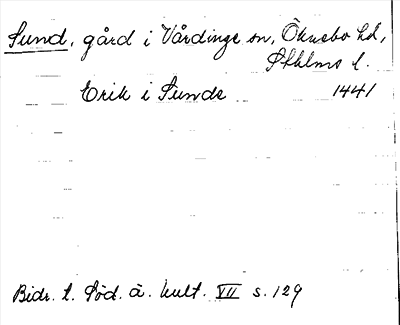 Sund, gård i Vårdinge sn, Öknebo hd,
Sthlms l.
Erik i Sunde 1441
Bidr. t. Söd. ä. kult. VII s. 129